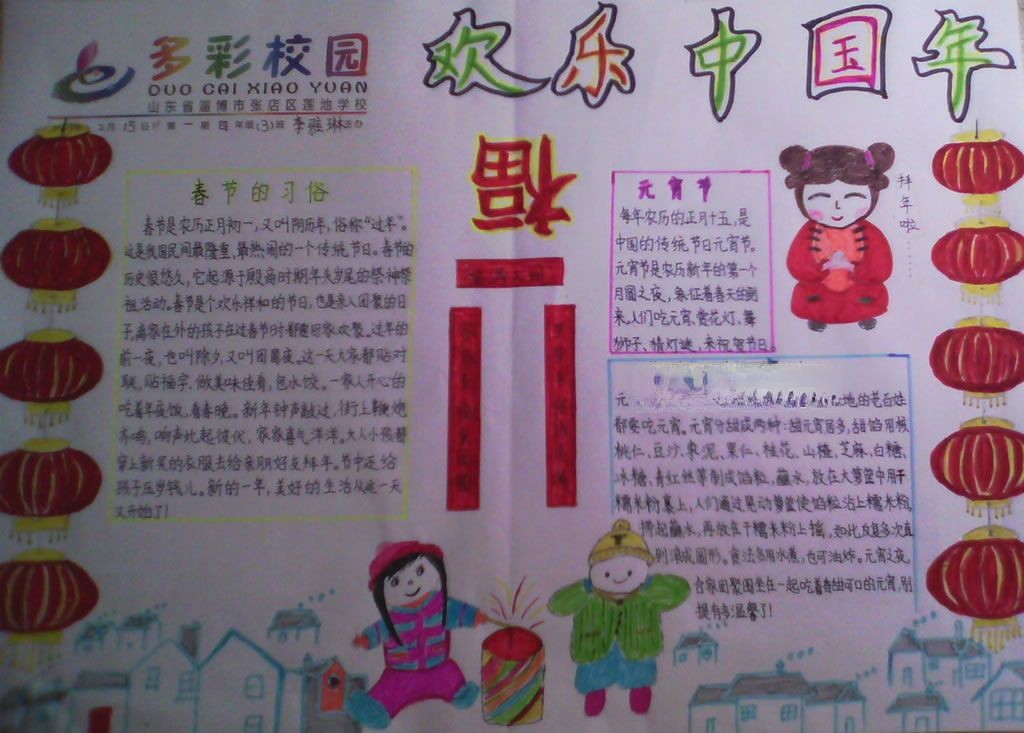 多彩校园
DUO CAI XIAO YUAN
山东省淄博市张店区莲池学校
2月15日 第一期四年级(3)班 李雅琳主办
欢乐中国年
福
春节的习俗
春节是农历正月初一,又叫阴历年,俗称“过年”。
这是我国民间最隆重、最热闹的一个传统节日。春节的
历史很悠久,它起源于殷商时期年头岁尾的祭神祭
祖活动。春节是个欢乐祥和的节日,也是亲人团聚的日
子,离家在外的孩子在过春节时都要回家欢聚。过年的
前一夜,也叫除夕,又叫团圆夜。这一天大家都贴对
联,贴福字、做美味佳肴,包水饺。一家人开心的
吃着年夜饭,看春晚。新年钟声敲过,街上鞭炮
齐鸣,响声此起彼伏,家家喜气洋洋。大人小孩都
穿上新买的衣服去给亲朋好友拜年。节中还给
孩子压岁钱儿。新的一年,美好的生活从这一天
又开始了!
元宵节
每年农历的正月十五,是
中国的传统节日元宵节。
元宵节是农历新年的第一个
月圆之夜,象征着春天的到
来,人们吃元宵、赏花灯、舞
狮子、猜灯谜,来祝贺节日。
拜年啦……
元 地的老百姓
都要吃元宵。元宵分甜咸两种:甜元宵居多,甜馅用核
桃仁、豆沙、枣泥、果仁、桂花、山楂、芝麻、白糖、
冰糖,青红丝等制成馅粒,蘸水,放在大箩筐中用干
糯米粉裹上,人们通过晃动箩筐使馅粒沾上糯米粉,
捞起蘸水,再放在干糯米粉上摇,如此反复多次直
到滚成圆形。食法多用水煮,也可油炸。元宵之夜,
合家团聚围坐在一起吃着香甜可口的元宵,别
提有多温馨了!